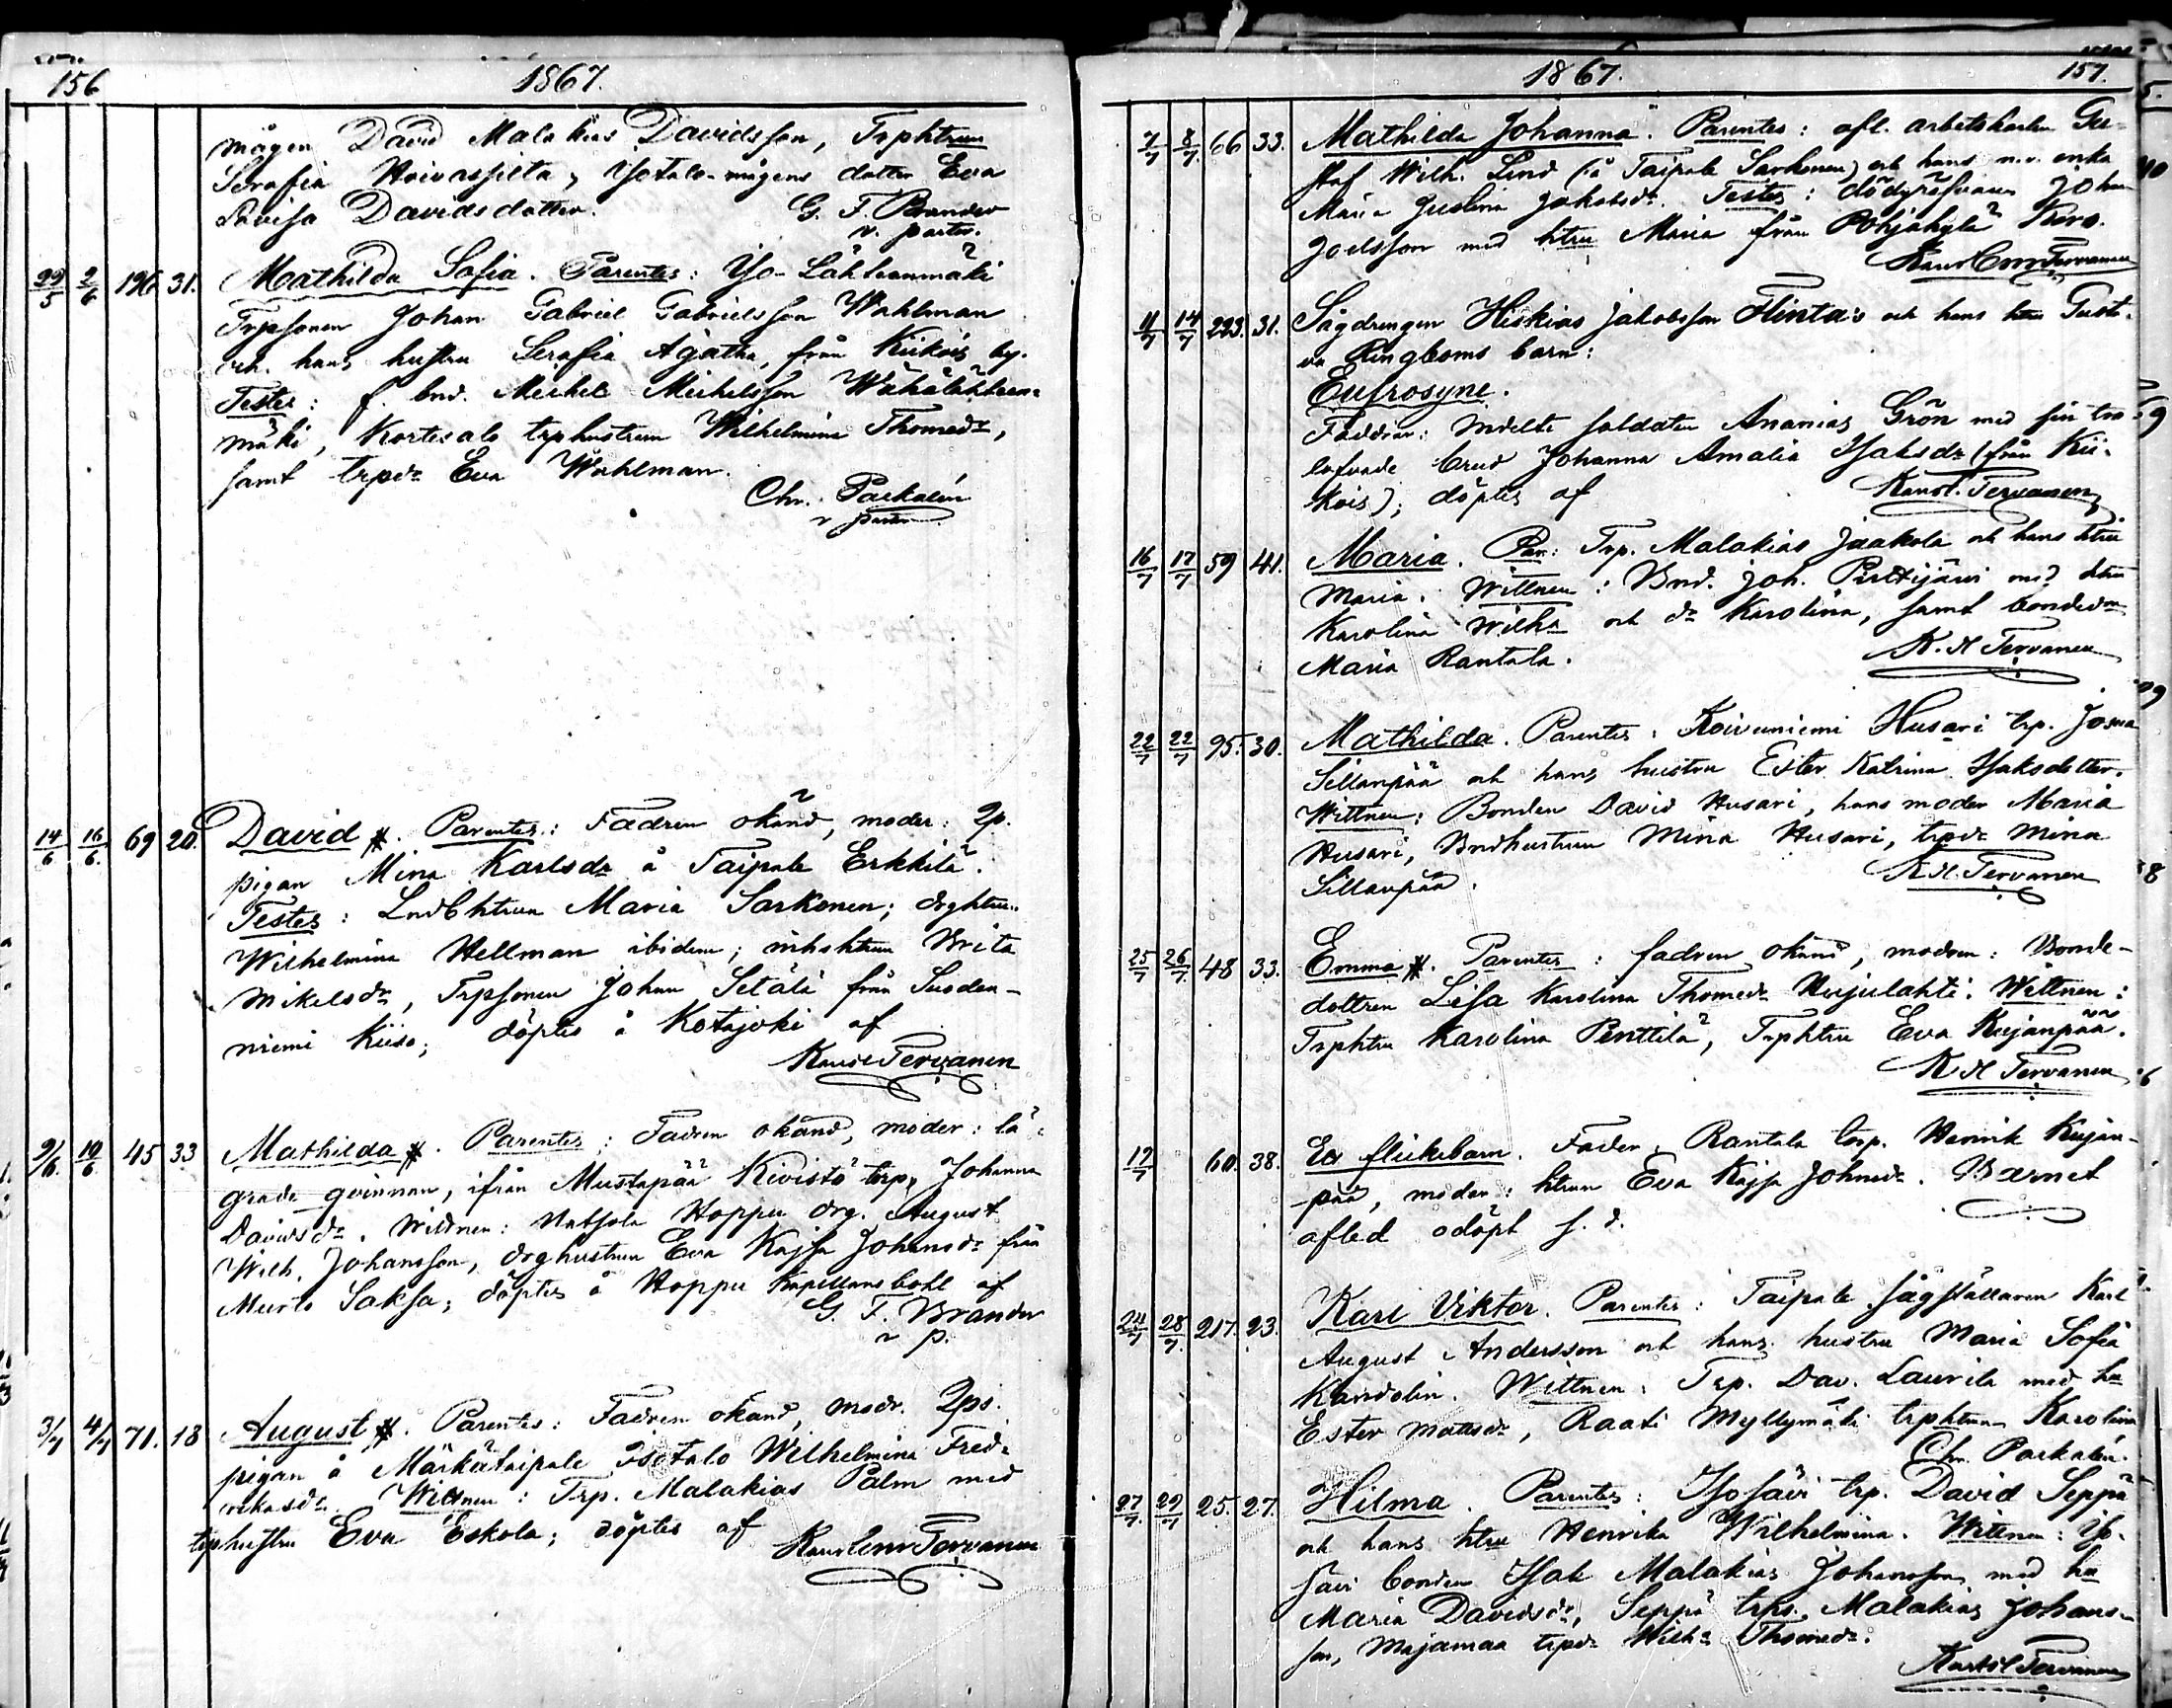 156
1867.
mågen David Malakias Davidsson, Trphtrun
Serafia Koivasilta, Isotalo-mågens dotter Eva
Lovisa Davidsdotter. G. F. Brander
v. pastor.
29/5 2/6 196 31. Mathilda Sofia. Parentes: Yo-Lähteenmäki
Trpsonen Johan Gabriel Gabrielsson Wahlman
och hans hustru Serafia Agatha, från Kiikois by.
Testes: f. bnd. Mickel Mickelsson Wähälähteen-
mäki, Kortesalo trphustrun Wilhelmina Thomasdr,
samt trpdr Eva Wahlman.
Chr. Packalén
v pastor
14/6 16/6. 69 20. David #. Parentes: Fadren okänd, moder: Qp.
pigan Mina Karlsdr å Taipale Erkkilä.
Testes: Lndbhtrun Maria Sarkonen; drghtrun
Wilhelmina Hellman ibidem; inhshtrun Brita
Mikelsdr, Trpsonen Johan Setälä från Suoden-
niemi Kiiso; döptes å Kotajoki af
Tervanen
9/6. 10/6 45 33 Mathilda #. Parentes: Fadren okänd, moder: lä-
grade qvinnan, ifrån Mustapää Kivistö trp, Johanna
Davidsdr. Wittnen: Hoppu drg. August
Wilh. Johansson, drghustrun Eva Kajsa Johansdr från
Murto Saksa; döptes å Hoppu Kapellansbohl af
G. F. Brander
v p.
3/7 4/7 71. 18 August #. Parentes: Fadren okänd, modr. Qps.
pigan å Märkätaipale Isotalo Wilhelmina Fred-
riksdr. Wittnen: Trp. Malakias Palm med
trphustru Eva Eskola; döptes af Tervanen
1867.
157.
7/7 8/7. 66 33. Mathilda Johanna. Parentes: afl. arbetskarlen Gu-
staf Wilh. Lind (å Taipale Sarkonen) och hans n.v. enka
Maria Gustava Jakobsdr. Testes: dödgräfvaren Johan
Joelsson med htru Maria från Pohjakylä Karo.
Tervanen
11/7 14/7 223. 31. Sågdrengen Hiskias Jakobsson Flinta's och hans htru Gusta-
va Ringboms barn:
Eufrosyne.
Faddrar: Indelte soldaten Ananias Grön med sin tro-
lofvade brud Johanna Amalia Isaksdr (från Kii-
kois); döptes af Tervanen
16/7 17/7 59 41. Maria. Par: Trp. Malakias Jaakola och hans htru
Maria. Wittnen: Bnd. Joh. Pirttijärvi med htru
Karolina Wilha och dr Karolina, samt bondedr
Maria Rantala. K. H Tervanen
22/7 22/7 95. 30. Mathilda. Parentes: Koivuniemi Husari trp. Josua
Sillanpää och hans hustru Ester Katrina Isaksdotter.
Wittnen: Bonden David Husari, hans moder Maria
Husari, Bndhustrun Mina Husari, trpdr Mina
Sillanpää. K H. Tervanen
25/7 26/7 48 33. Emma #. Parentes: fadren okänd, modren: Bonde-
dottren Lisa Karolina Thomasdr Heijulahti. Wittnen:
Trphtru Karolina Penttilä, Trphtru Eva Kujanpää.
K H Tervanen
17/7 60. 38. Ett flickebarn. Fader: Rantala torp. Henrik Kujan-
pää, moder: htrun Eva Kajsa Johansdr. Barnet
afled odöpt s. d.
24/7 28/7. 217. 23. Karl Viktor. Parentes: Taipale sågställaren Karl
August Andersson och hans hustru Maria Sofia
Kandolin. Wittnen: Trp. Dav. Laurila med hu
Ester Mattsdr, Raati Myllymäki trphtrun Karolina
Chr. Packalén.
27/7. 29/7 25. 27. Hilma. Parentes: Isosävi trp. David Seppä
och hans htru Henrika Wilhelmina. Wittnen: Iso-
sävi bonden Isak Malakias Johansson med hu
Maria Davidsdr, Seppä trps. Malakias Johans-
son, Majamaa trpdr Wilha Thomasdr.
Tervanen